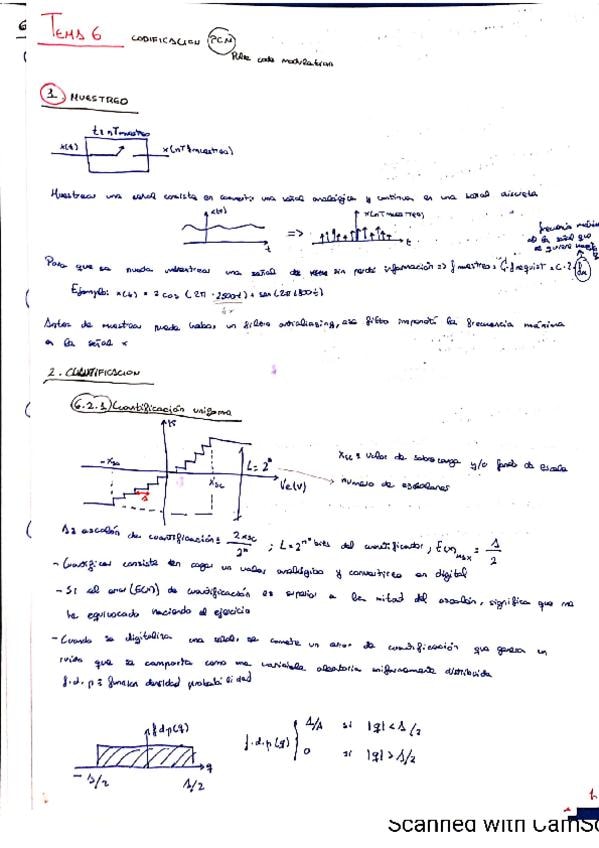 TEMA 6 CODIFICACION PCM
Pulse code modulation
1. MUESTREO
t = nTmuestreo
x(t) x(nTmuestreo)
Muestrear una señal consiste en convertir una señal analógica y continua en una señal discreta
x(t) => x(nTmuestreo)
t t
Para que se pueda muestrear una señal de sin perder información => fmuestreo =
Ejemplo: x(t) = 2 cos (2π · 2500t) + sen (2π 1800t)
Antes de muestrear puede haber un filtro antialiasing, ese filtro impondrá la frecuencia máxima
en la señal x
2. CUANTIFICACION
6.2.1 Cuantificación uniforme
-Xsc Xsc L = 2ⁿ Ve(V)
Δ
Xsc = valor de sobrecarga y/o fondo de escala
número de escalones
Δ = escalón de cuantificación = 2Xsc / 2ⁿ ; L = 2ⁿ n = bits del cuantificador ; E(n)MAX = Δ / 2
- Cuantificar consiste en coger un valor analógico y convertirlo en digital
- Si el error (E(n)) de cuantificación es superior a la mitad del escalón, significa que me
he equivocado haciendo el ejercicio
- Cuando se digitaliza una señal, se comete un error de cuantificación que genera un
ruido que se comporta como una variable aleatoria uniformemente distribuida
f.d.p = función densidad probabilidad
f.d.p(q)
-Δ/2 Δ/2 q
f.d.p(q) { 1/Δ si |q| < Δ/2
0 si |q| > Δ/2
Scanned with CamSc